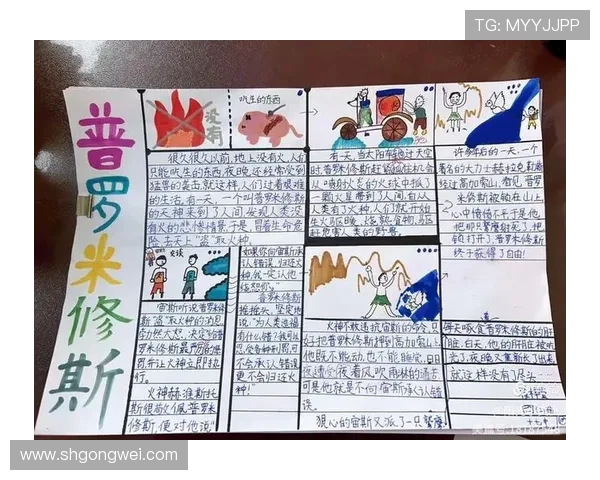 TG: MYYJJPP
普罗米修斯
没有
吃生的东西
很久很久以前,地上没有火,人们
只能吃生的东西,夜晚还修常受到
猛兽的袭击,就这样,人们过着艰难
的生活。有一天,一个叫普罗米修斯
的天神来到了人间,发现人类没
有火的悲惨情景,于是,冒着生命危
险,去天上"盗"取火种。
有一天,当太阳车驰过天空
时,普罗米修斯赶紧抓住机会
从喷射火炎的火球中抓了
一颗火星带到了人间。自从
人类有了火种,人们就开始
危害人类的野兽。
许多年后的一天,一个
著名的大力士赫拉克勒斯
经过高加索山,看见,普罗
米修斯被锁在山上,
心中愤愤不平于是他
锁打开了,普罗米修斯
终于获得了自由!
交谈
宙斯听说普罗米修
斯"盗"取火种的消息,
普罗米修斯最严厉的
罚,并让火神立即执
行。
火神赫淮斯托
斯很敬佩普罗米
修斯,便对他说
如果你向宙斯承
认错误,归还火
种,我一定让他
饶恕你。"
普罗米修斯
摇摇头,坚定地
说:"为人类造福
有什么错?我可以
忍受各种刑罚,可
不会承认错误,
更不会归还火
种!"
火神不敢违抗宙斯的命令,只
好把普罗米修斯押到高加索山上
他既不能动,也不能睡觉,日日
夜夜遭受着风吹雨林的痛苦
可是他就是不向宙斯承认错
误。
狠心的宙斯又派了一只鹫鹰
每天啄食普罗米修斯的肝
脏,白天,他的肝脏被吃
光了,夜晚又重新长了出来
就这样没有了尽头……
www.shgongwei.com